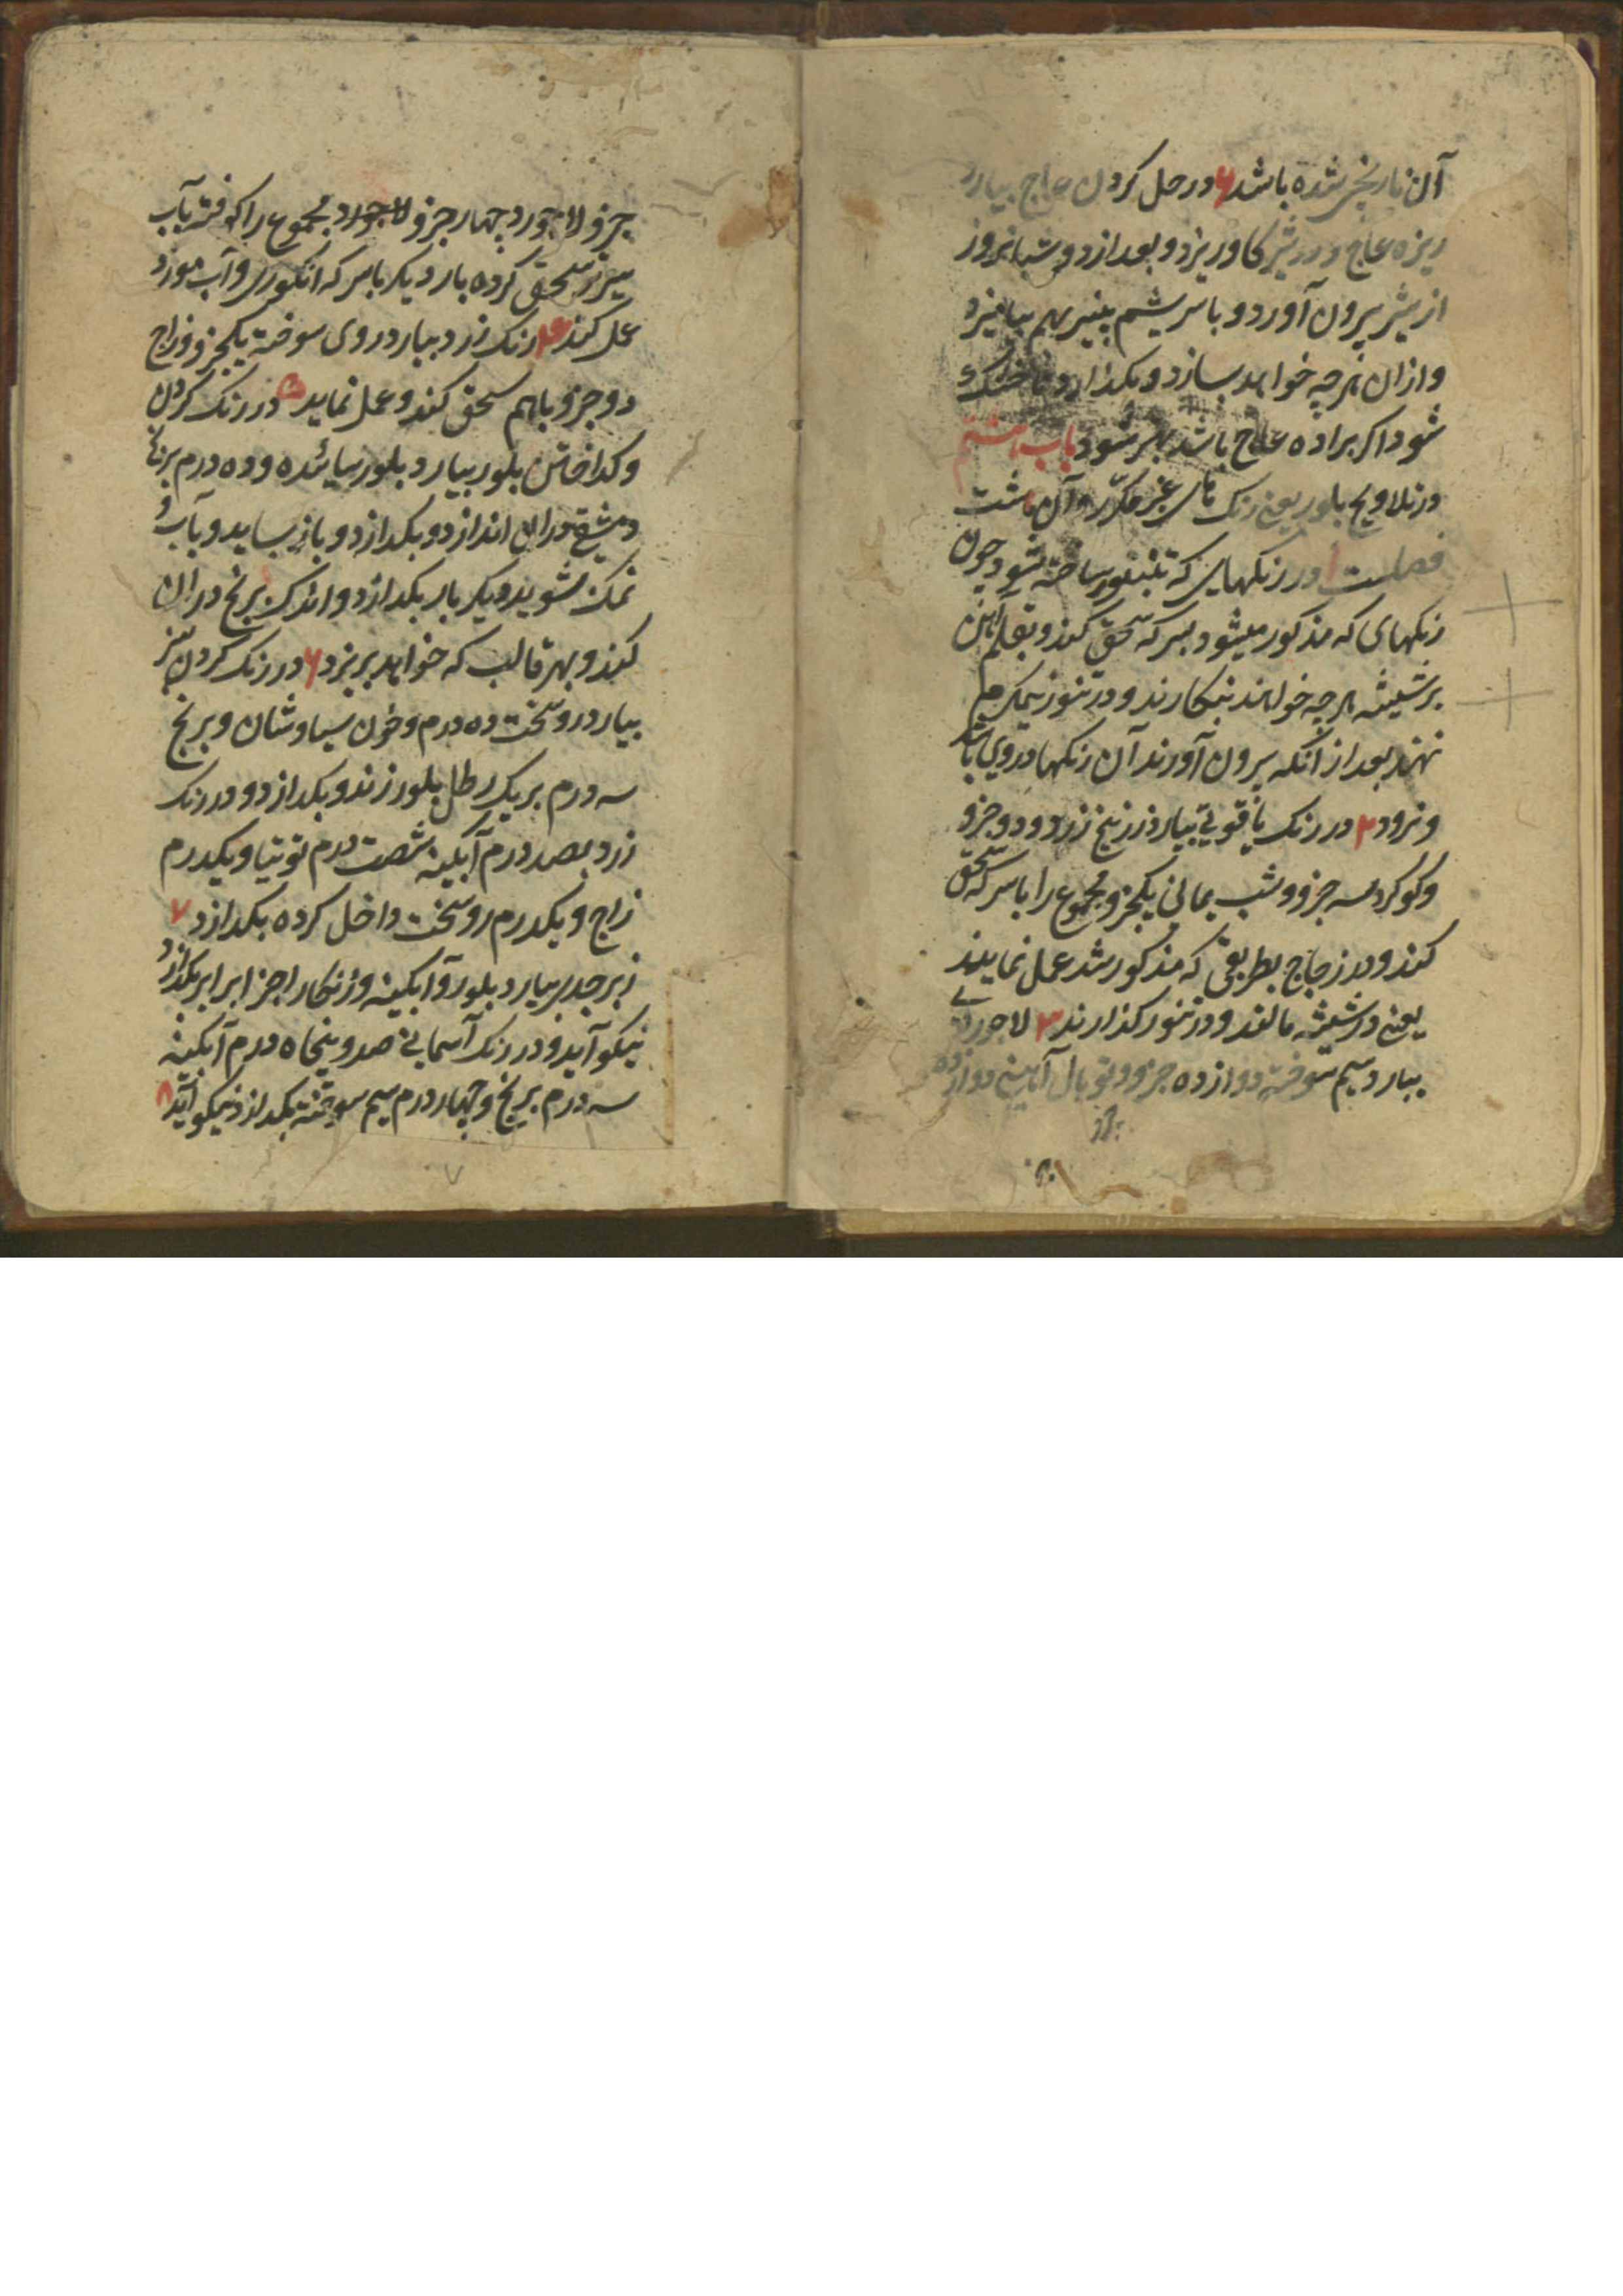 آن نارنجی شده باشد ۶ در حل کردن عاج بیارد
ریزه عاج و در شیر کاو ریزد و بعد از دو شبانروز
از شیر بیرون آورد و با سریشم پنیر بهم بیامیزد
و ازان هرچه خواهد بسازد و بکذارد تا خشک
شود اکر براده عاج باشد بهتر شود باب هشتم
در تلاویح بلور یعنی رنک های غیر مکرر و آن هشت
فصلست ۱ در رنکهایی که بر بلور ساخته شود چون
رنکهای که مذکور میشود بسرکه سحق کنند و بقلم آهن
بر شیشه هرچه خواهند بنکارند و در تنور نیمکرم
نهند بعد از آنکه بیرون آورند آن رنکها در وی باشد
و نرود ۲ در رنک یاقوتی بیارد زرنیخ زرد و دو جزو
و کوکرد سه جزو و شب یمانی یکجزو مجموع را با سرکه سحق
کنند و در زجاج بطریقی که مذکور شد عمل نمایند
یعنی در شیشه مالند و در تنور کذارند ۳ لاجوردی
بیارد سیم سوخته دوازده جزو و توبال آهنین دوازده
جزو لاجورد چهار جزو لاجورد مجموع را کوفته بآب
سیر سحق کرده بار دیکر با سرکه انکوری و آب مورد
عمل کند ۴ رنک زرد بیارد روی سوخته یکجزو و زاج
دو جزو باهم سحق کنند و عمل نماید ۵ در رنک کردن
و کداختن بلور بیارد بلور سائیده و ده درم برنج
دمشقی دران اندازد و بکدازد و باز بساید و بآب و
نمک بشوید و دیکر بار بکدازد و اندک برنج دران
کند و بهر قالب که خواهد بریزد ۶ در رنک کردن سبز
بیارد روسخت ده درم و خون سیاوشان و برنج
سه درم بر یک رطل بلور زند و بکدازد و در رنک
زرد بصد درم آبکینه شصت درم توتیا و یکدرم
زاج و یکدرم روسخت داخل کرده بکدازد ۷
زبرجدی بیارد بلور و آبکینه و زنکار اجزا برابر بکدازد
نیکو آید و در رنک آسمانی صد و پنجاه درم آبکینه
سه درم برنج و چهار درم سیم سوخته بکدازد نیکو آید ۸
۷